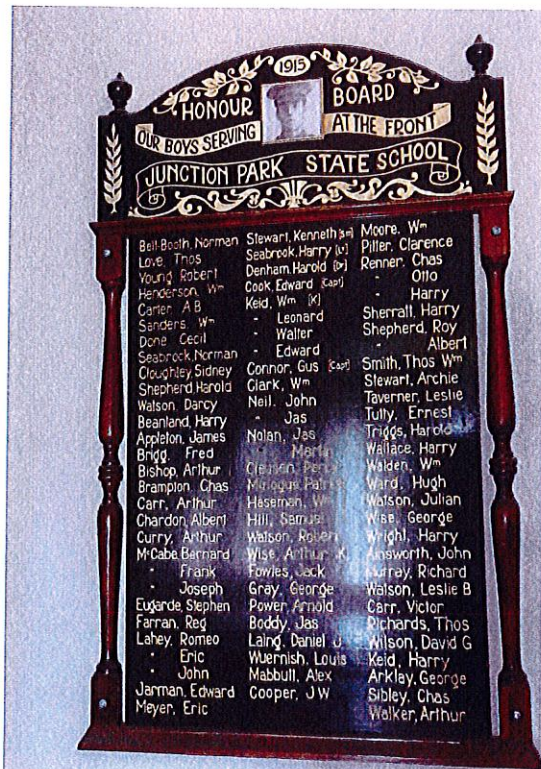 1915
HONOUR BOARD
OUR BOYS SERVING AT THE FRONT
JUNCTION PARK STATE SCHOOL
Bell-Booth, Norman
Love, Thos
Young Robert
Henderson, Wm
Carter, A B
Sanders, Wm
Done Cecil
Seabrook, Norman
Cloughley, Sidney
Shepherd, Harold
Watson, Darcy
Beanland, Harry
Appleton, James
Brigg, Fred
Bishop, Arthur
Brampton, Chas
Carr, Arthur
Chardon, Albert
Curry, Arthur
McCabe, Bernard
" Frank
" Joseph
Eugarde, Stephen
Farran, Reg
Lahey, Romeo
" Eric
" John
Jarman, Edward
Meyer, Eric
Stewart, Kenneth
Seabrook, Harry [Lt]
Denham, Harold [Dr]
Cook, Edward [Capt]
Keid, Wm [K]
" Leonard
" Walter
" Edward
Connor, Gus [Capt]
Clark, Wm
Neil, John
" Jas
Nolan, Jas
" Martin
Clemson, Percy
Patrick
Haseman, Wm
Hill, Samuel
Watson, Robert
Wise, Arthur K
Fowles, Jack
Gray, George
Power, Arnold
Boddy, Jas
Laing, Daniel J
Wuernish, Louis
Mabbutt, Alex
Cooper, J W
Moore, Wm
Pitter, Clarence
Renner, Chas
" Otto
" Harry
Sherratt, Harry
Shepherd, Roy
" Albert
Smith, Thos Wm
Stewart, Archie
Taverner, Leslie
Tutty, Ernest
Triggs, Harold
Wallace, Harry
Walden, Wm
Ward, Hugh
Watson, Julian
Wise, George
Wright, Harry
Ainsworth, John
Murray, Richard
Watson, Leslie B
Carr, Victor
Richards, Thos
Wilson, David G
Keid, Harry
Arklay, George
Sibley, Chas
Walker, Arthur